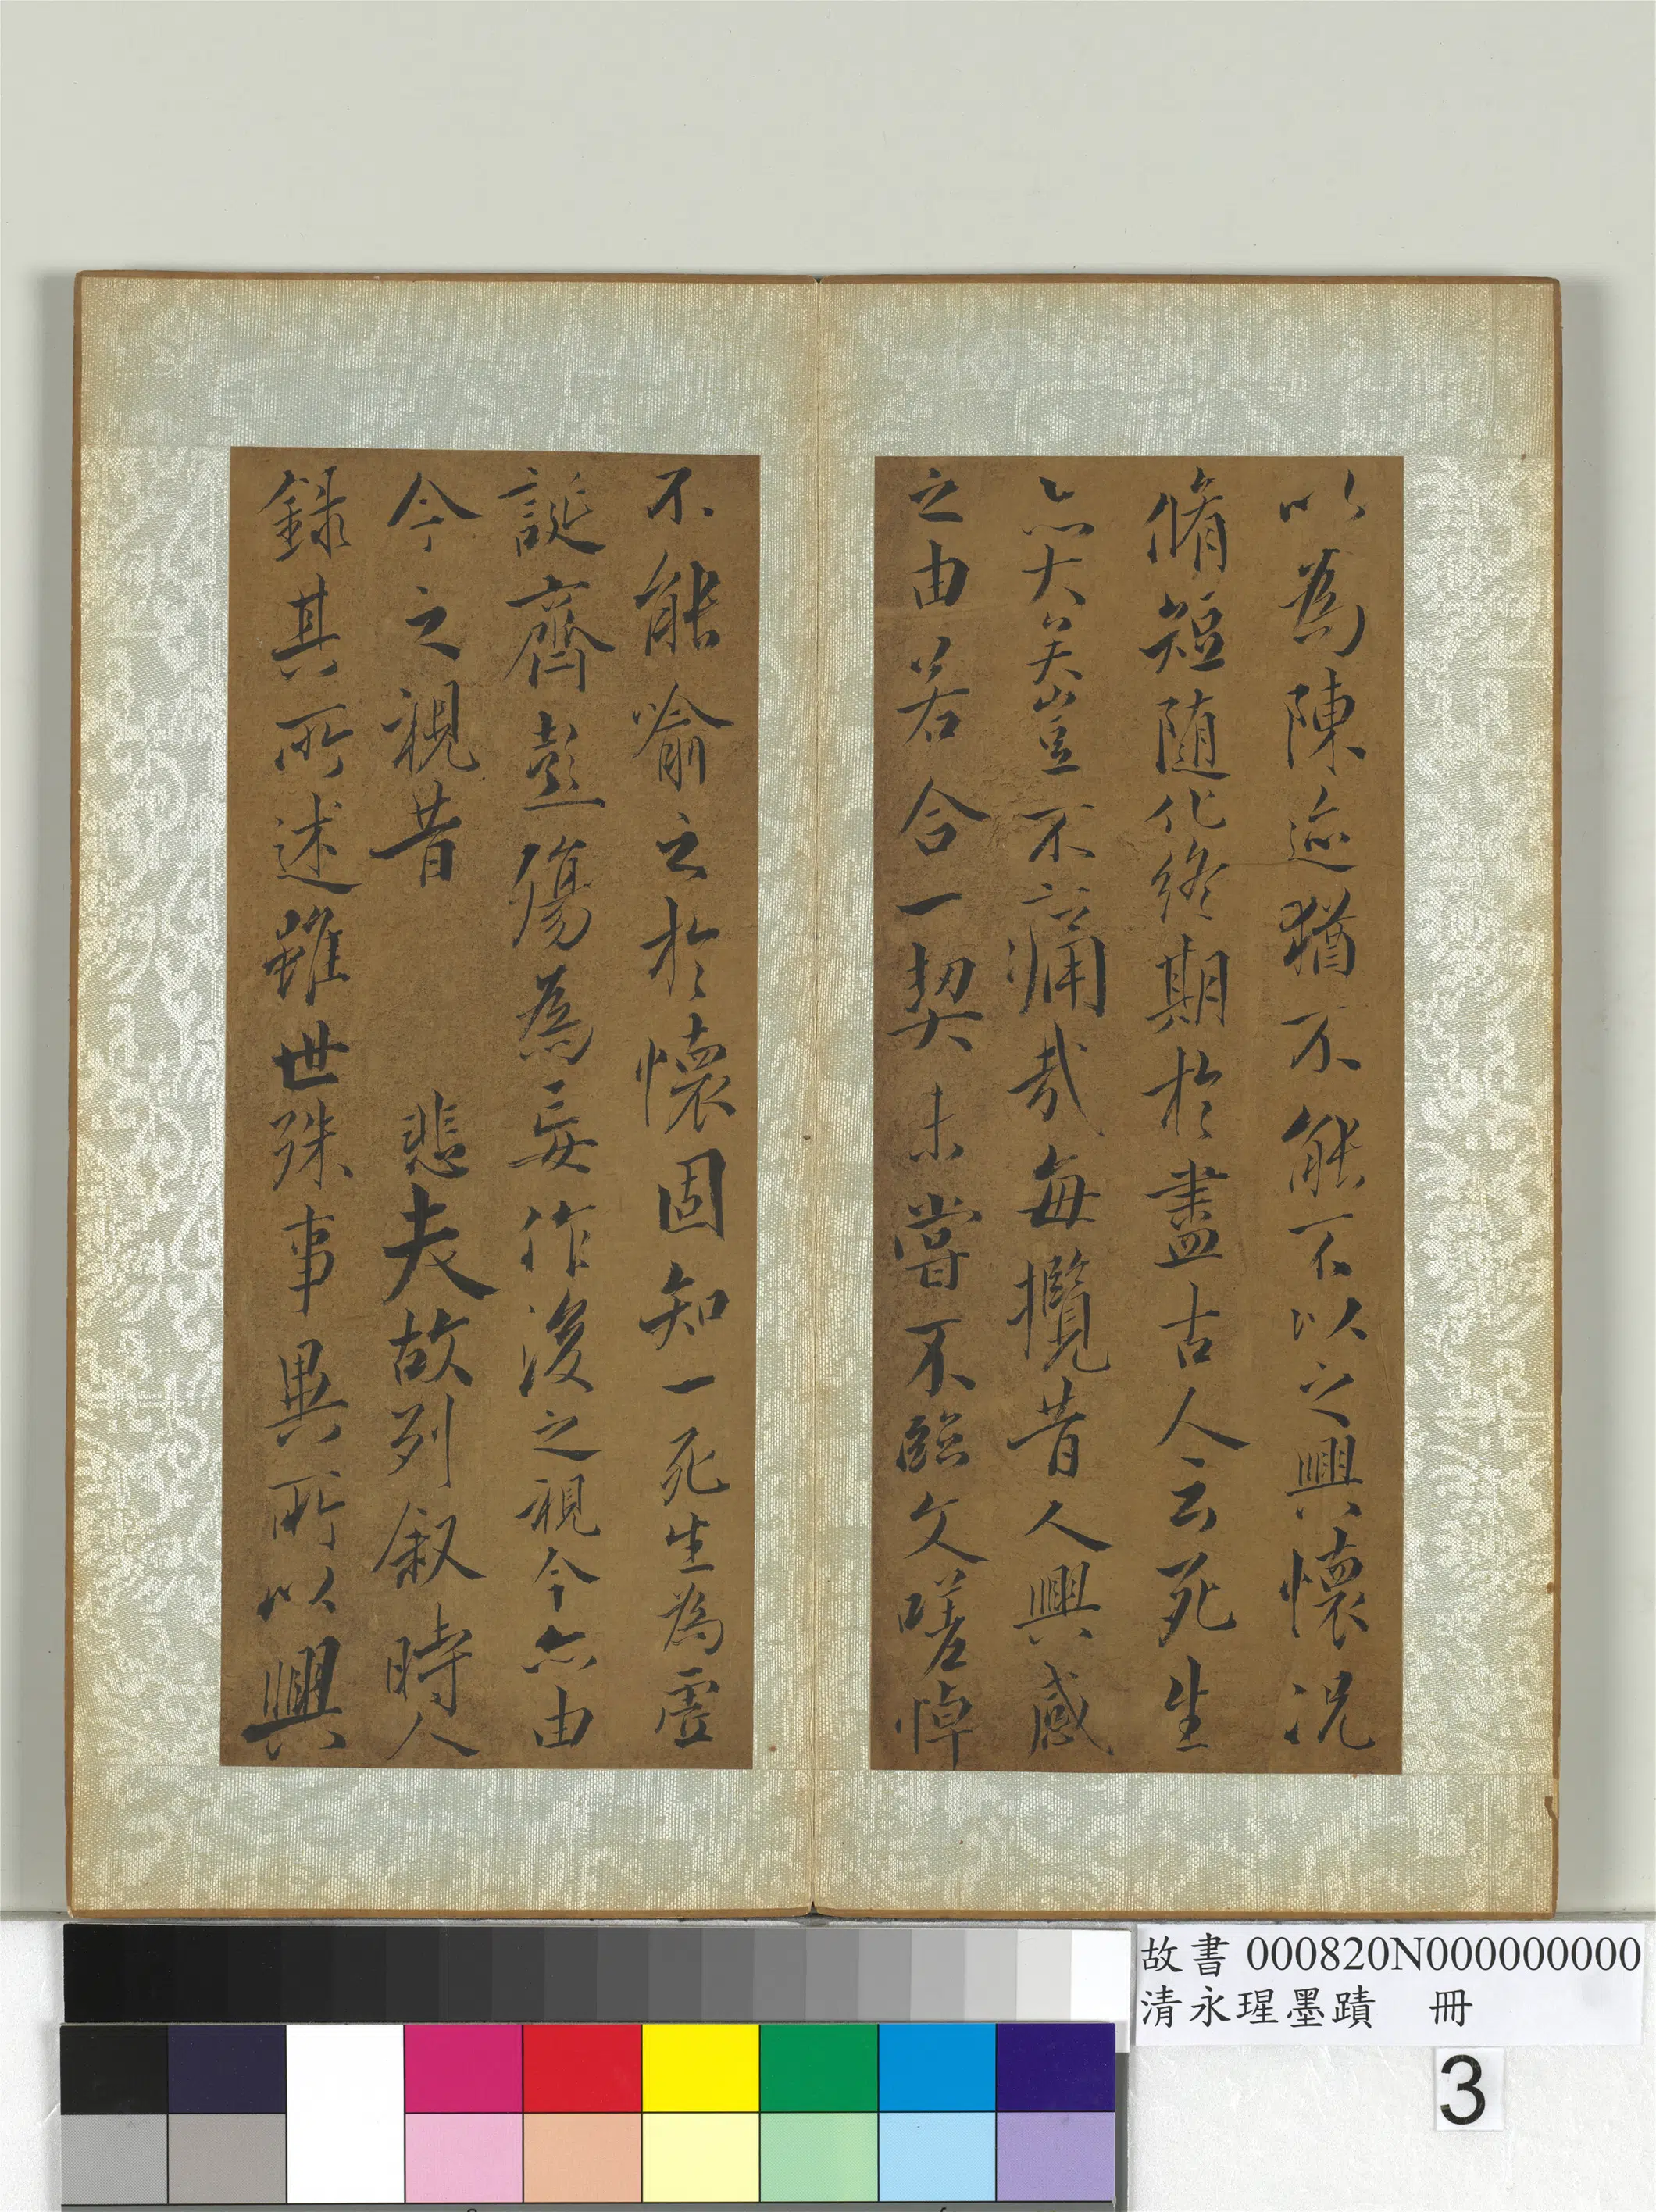 以為陳迹猶不能不以之興懷況
脩短随化終期於盡古人云死生
亦大矣豈不痛哉每攬昔人興感
之由若合一契未嘗不臨文嗟悼
不能喻之於懷固知一死生為虛
誕齊彭殤為妄作後之視今亦由
今之視昔 悲夫故列叙時人
錄其所述雖世殊事異所以興
故書 000820N000000000
清永瑆墨蹟 冊
3